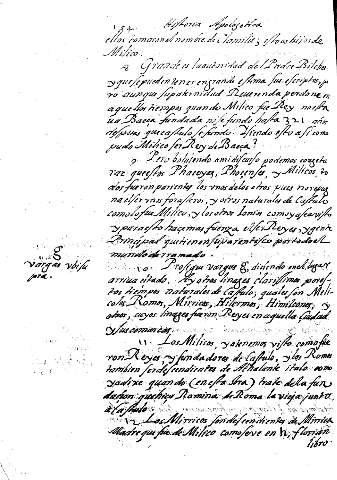 154
Historia Apologetica
ellos tomaron el nombre de Familia; esto es hijos de
Milico.
8. Grande es la autoridad del Padre Bilches
y que se pueden tener en grande estima sus escriptos; pe
ro aunque su paternidad Reverenda perdone, en
aquellos tiempos quando Milico fue Rey nuestra
Baeça fundada ni se fundó hasta 321 años
despues que Castulo se fundó. Siendo esto así como
pudo Milico ser Rey de Baeça?
9. Pero bolviendo a mi discurso podemos conocer
vez que estos Phoceyos, Phocenses, y Milicos, to
dos fueron parientes los unos de los otros pues no repug
na el ser unos forasteros, y otros naturales de Castulo
como lo fue Milico, y los otros Ionia como ya se a visto
y para esto haze mas fuerza el ser Reyes, y gente
Principal que tienen su parentesco por todo el
mundo derramado.
10. Prosigue Vargas g, diciendo en el lugar
arriva citado. Ay otros linages clarissimos por es
tos tiempos naturales de Castulo, quales son Mili
cos, Romos, Mirricos, Hilermos, Himilcones, y
otros, cuyos linages fueron Reyes en aquella Ciudad
y sus comarcas.
g
Vargas ubi su
pra.
11. Los Milicos, ya tenemos visto como fue
ron Reyes, y fundadores de Castulo, y los Romos
tambien son descendientes de Athalante italo como
ya dixe quando (en esta obra) trate de la fun
dacion que hizo Romina de Roma la vieja junto
a Castulo.
12. Los Mirricos son descendientes de Mirrica
Madre que fue de Milico como se ve en h, Florian
libro.